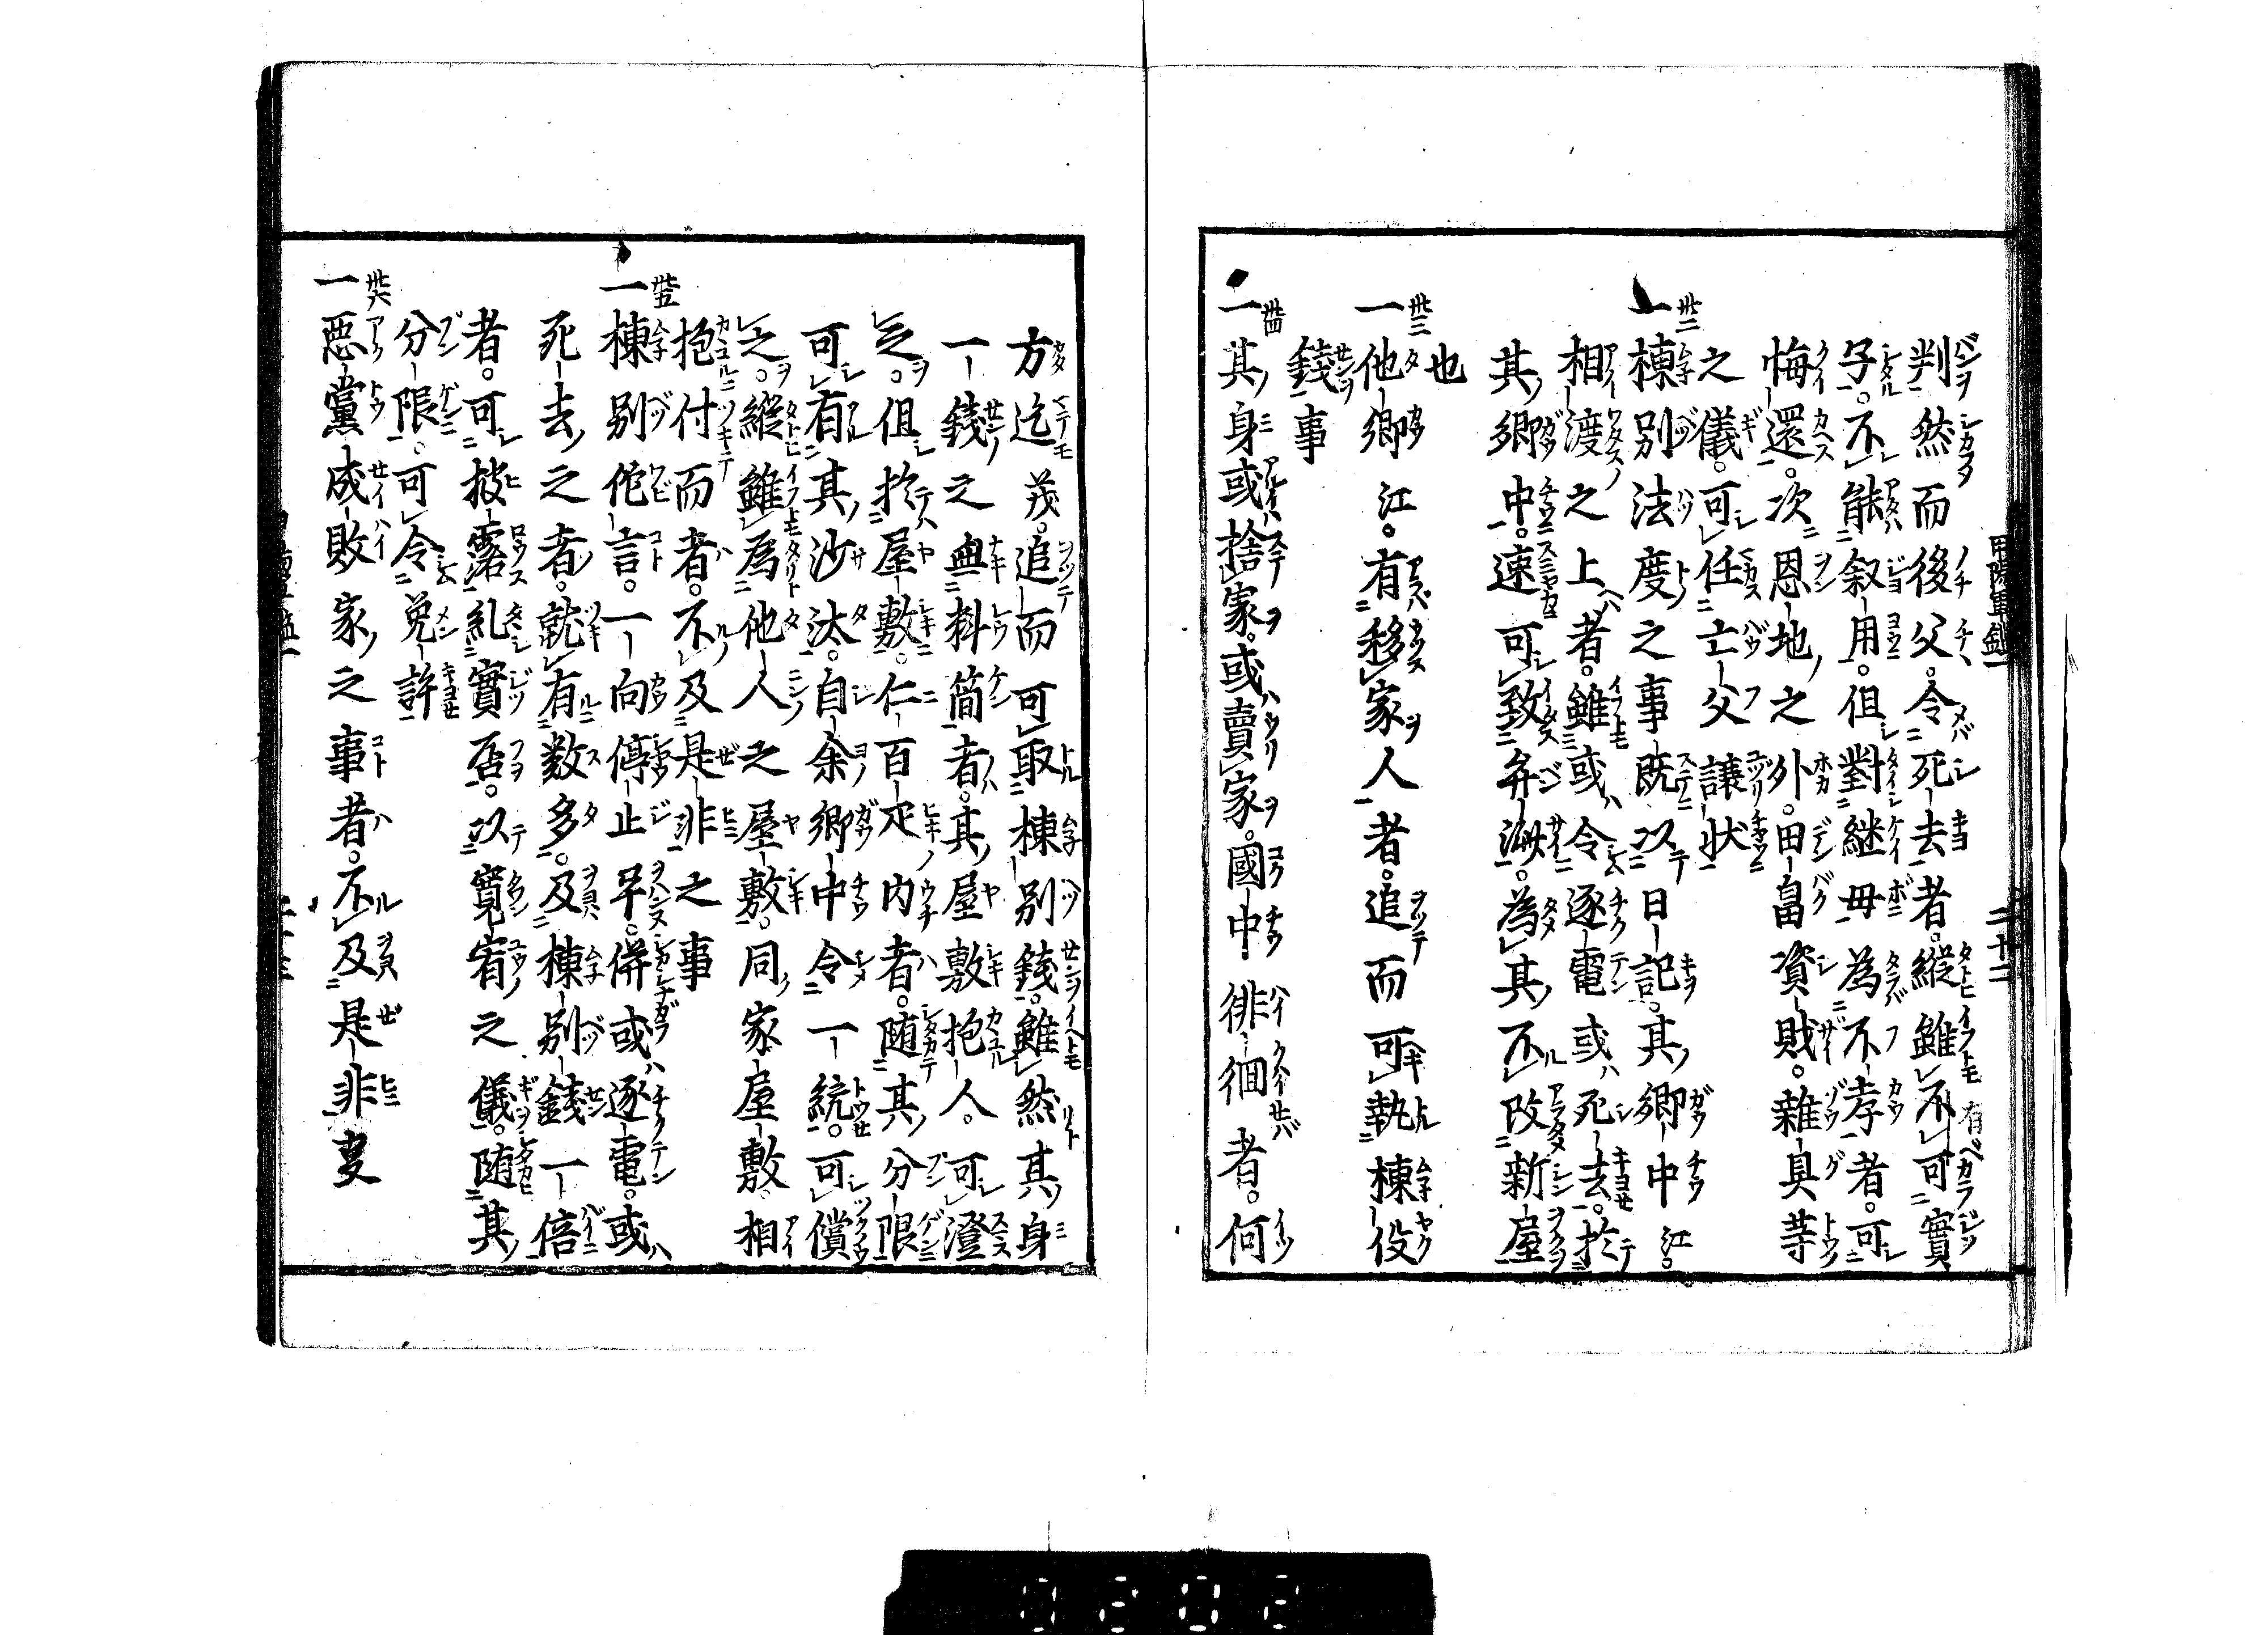 判然而後父。令死去者。縱雖不可有實
子。不能叙用。但對継母為不孝者。可
悔還。次恩地之外。田畠資財。雜具等
之儀。可任亡父讓状
一棟別法度之事既以日記。其郷中江。
相渡之上者。雖或令逐電或死去。於
其郷中。速可致弁濟。為其不改新屋
也
一他郷江。有移家人者。追而可執棟役
錢事
一其身或捨家。或賣家。國中徘徊者。何
方迄茂。追而可取棟別錢。雖然其身
一錢之無料簡者。其屋敷抱人。可澄
之。但於屋敷。仁百疋内者。随其分限
可有其沙汰。自余郷中令一統。可償
之。縱雖為他人之屋敷。同家屋敷相
抱付而者。不及是非之事
一棟別侘言。一向停止畢。併或逐電。或
死去之者。就有数多。及棟別錢一倍
者。可披露。糺實否。以寬宥之儀。随其
分限。可令免許
一惡黨成敗家之事者。不及是非叓
卅二
卅三
卅四
卅五
卅六
甲陽軍鑑一
二十二